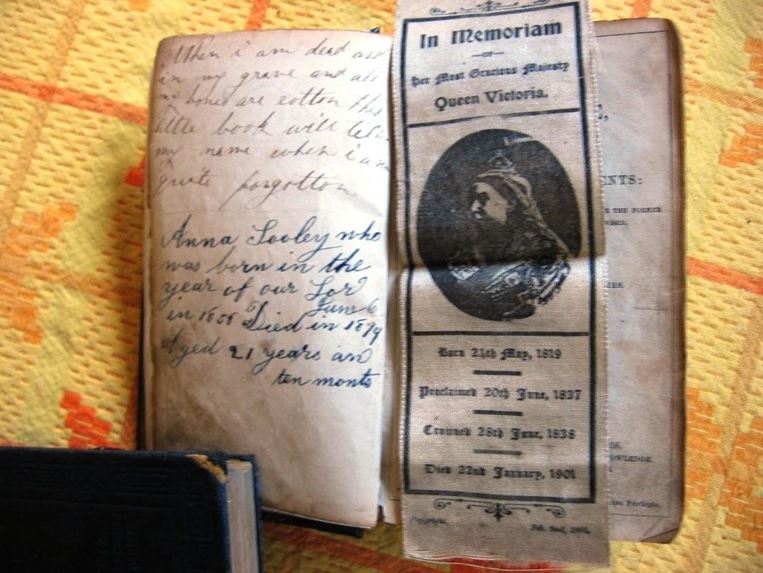 When i am dead and
in my grave and all
my bones are rotton this
little book will tell
my name when i am
quite forgotton
Anna Sooley who
was born in the
year of our Lor
June 6
in 1858 Died in 1879
Aged 21 years an
ten monts
In Memoriam
OF
Her Most Gracious Majesty
Queen Victoria.
Born 24th May, 1819
Proclaimed 20th June, 1837
Crowned 28th June, 1838
Died 22nd January, 1901
Copyright.
Feb. 2nd, 1901.
NTS: